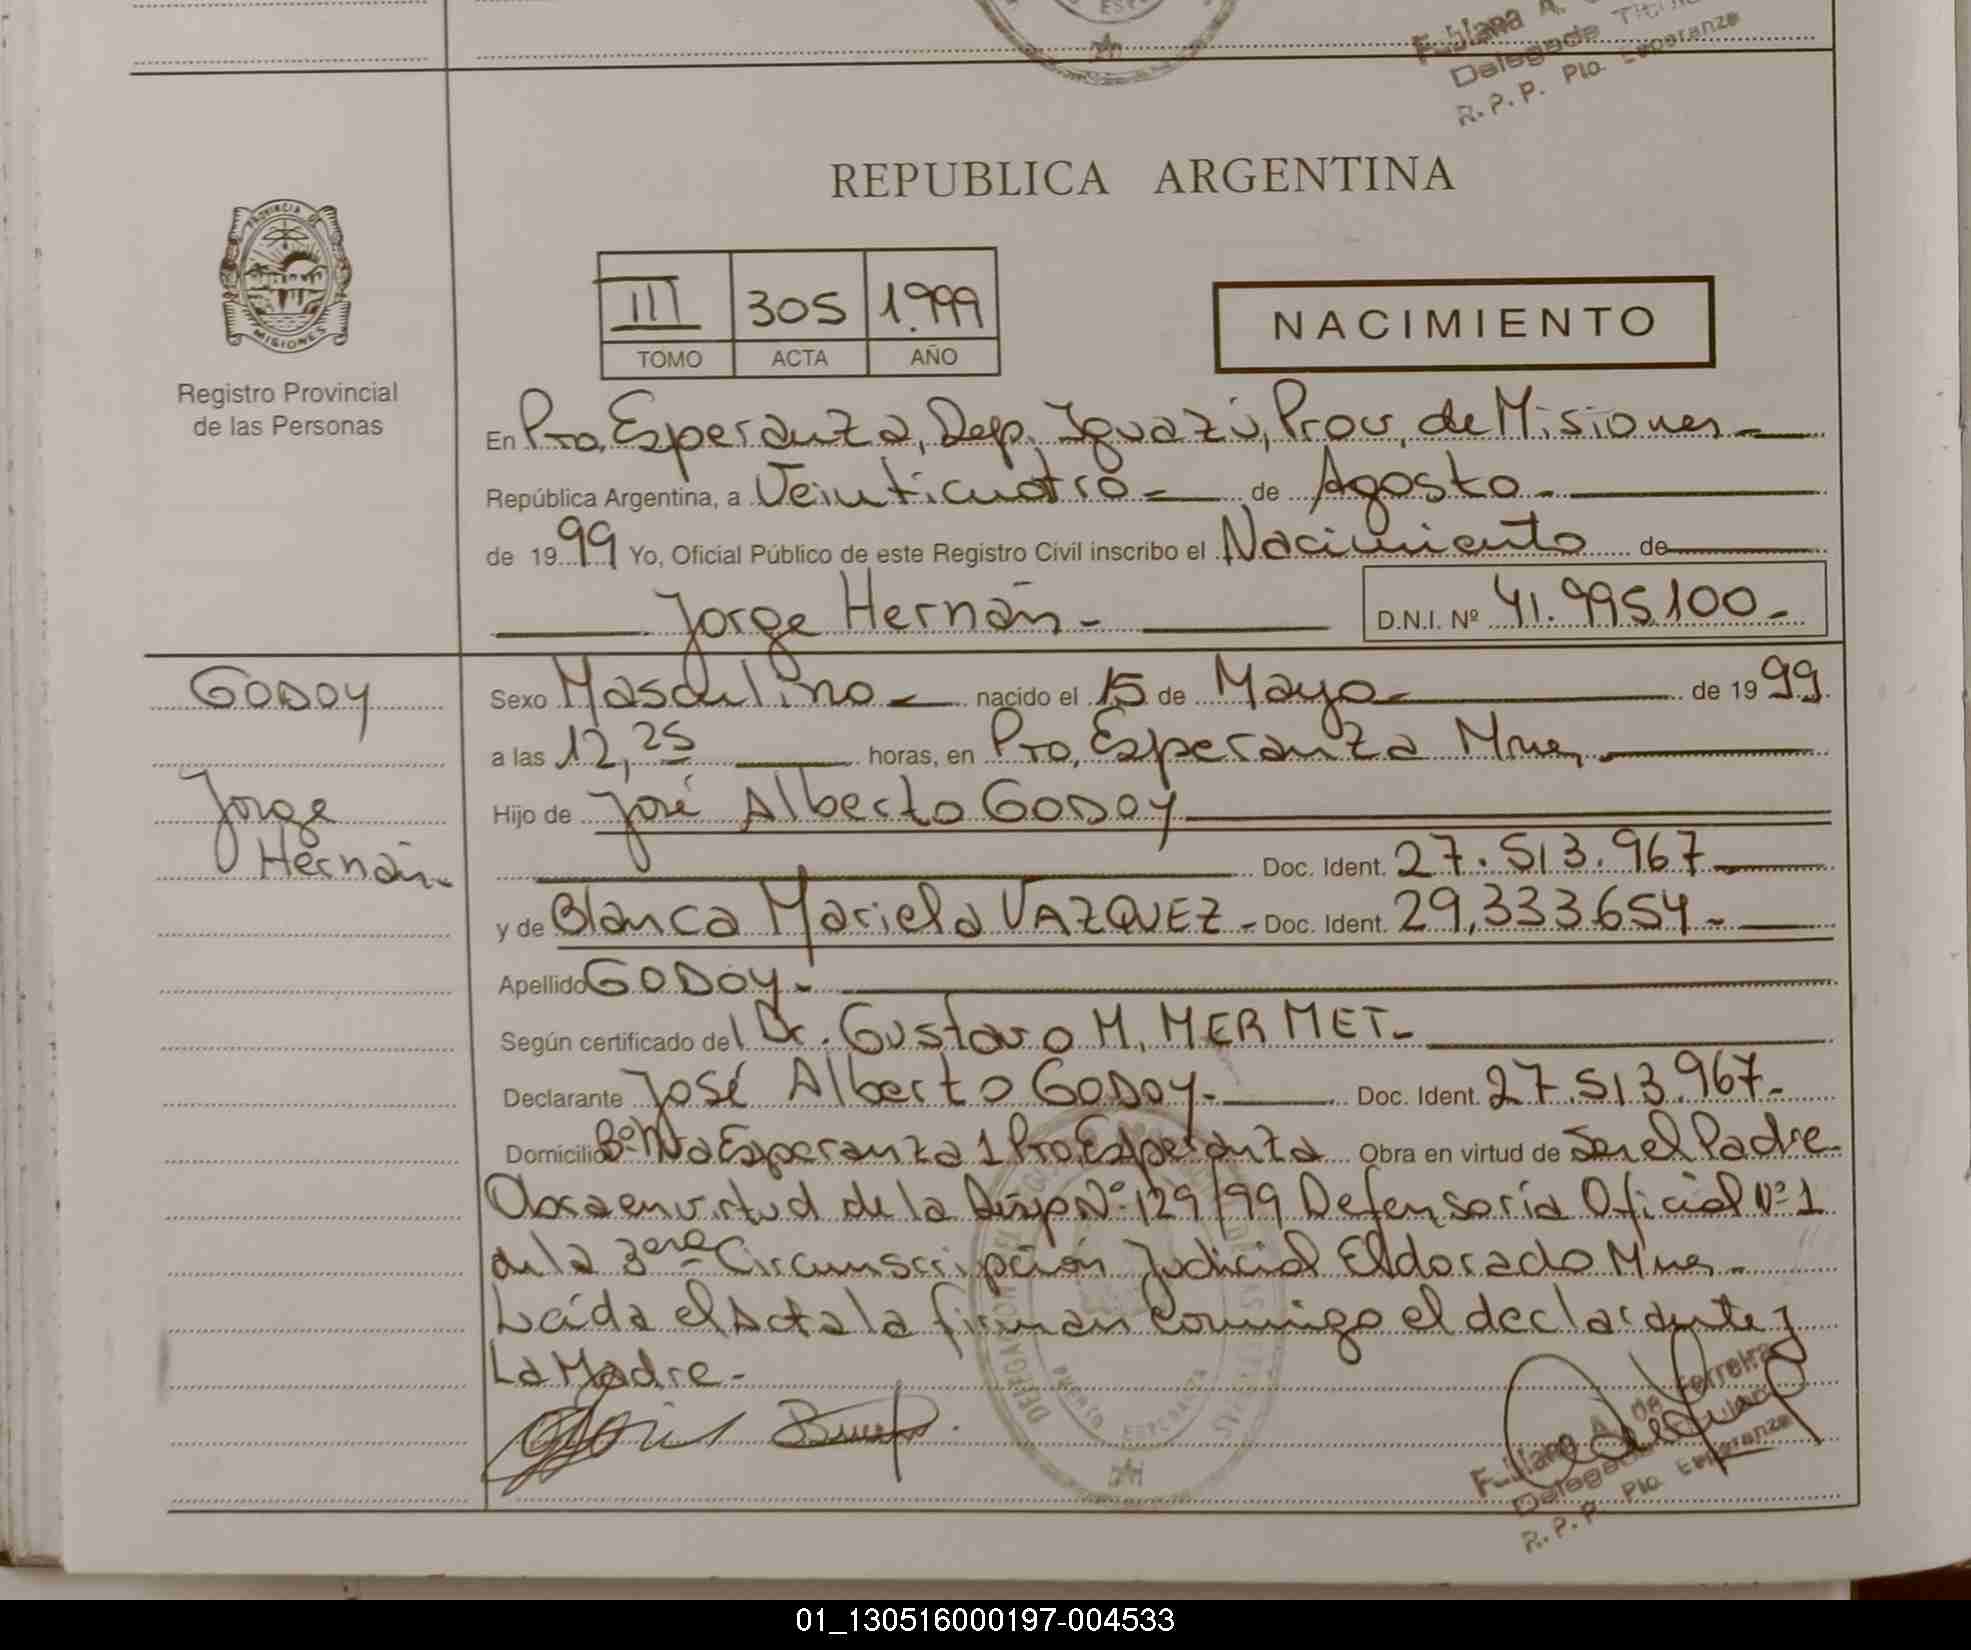 ESPE
Delegada Titul
R.P.P. Pto. Esperanza
REPUBLICA ARGENTINA
PROVINCIA DE
MISIONES
Registro Provincial
de las Personas
III 305 1.999
TOMO ACTA AÑO
NACIMIENTO
En Pto, Esperanza, Dep. Iguazú, Prov, de Misiones -
República Argentina, a Veinticuatro - de Agosto -
de 1999 Yo, Oficial Público de este Registro Civil inscribo el Nacimiento de
Jorge Hernán - D.N.I. Nº 41.995.100 -
GODOY
Jorge
Hernán -
Sexo Masculino - nacido el 15 de Mayo - de 1999.
a las 12,25 horas, en Pto, Esperanza Mnes,
Hijo de José Alberto GODOY
Doc. Ident. 27.513.967
y de Blanca Mariela VAZQUEZ - Doc. Ident. 29,333.654 -
Apellido GODOY -
Según certificado del Dr. Gustavo M. MERMET -
Declarante José Alberto GODOY - Doc. Ident. 27.513.967 -
Domicilio Bº Nva Esperanza 1 Pto, Esperanza Obra en virtud de Ser el Padre -
Obra en virtud de la Disp Nº 129/99 Defensoría Oficial Nº 1
de la 3era Circunscripción Judicial Eldorado Mnes -
Leída el Acta la firman Conmigo el declarante y
La Madre -
PUERTO ESPERANZA
Delegada
R.P.P. Pto. Esperanza
01_130516000197-004533